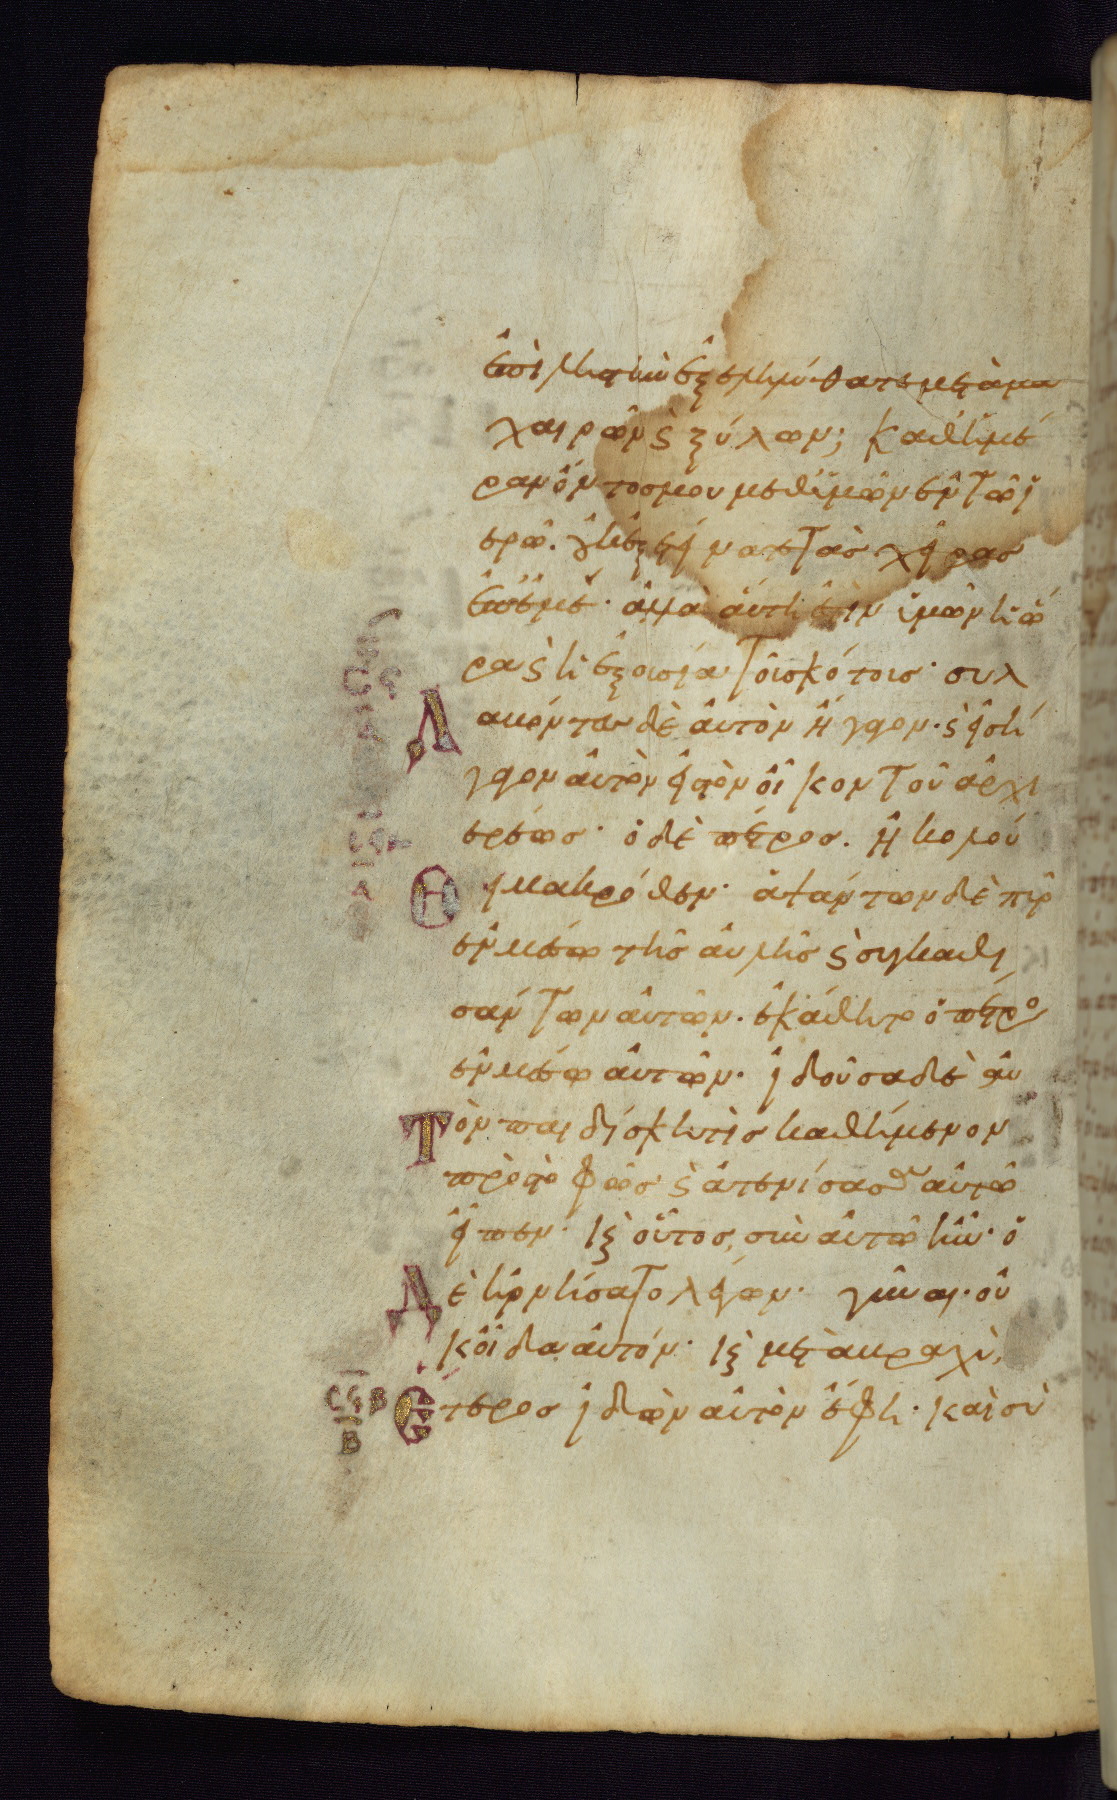 ἐπὶ ληστὴν ἐξεληλύθατε μετὰ μα
χαιρῶν ϗ ξύλων; καθημέ
ραν ὄντος μου μεθ' ὑμῶν ἐν τῶ ἱ
ερῶ. οὐκ ἐξετείνατε τὰς χεῖρας
ἐπ' ἐμέ· ἀλλὰ αὕτη ἐστὶν ὑμῶν ἡ ὥ
ρα ϗ ἡ ἐξουσία τοῦ σκότους· συλ
Λαβόντες δὲ αὐτὸν ἤγαγον· ϗ εἰσή
γαγον αὐτὸν εἰς τὸν οἶκον τοῦ ἀρχι
ερέως· ὁ δὲ πέτρος. ἠκολού
Θει μακρόθεν· ἁψάντων δὲ πῦρ
ἐν μέσω τῆς αὐλῆς ϗ συγκαθι
σάντων αὐτῶν. ἐκάθητο ὁ πέτρος
ἐν μέσω αὐτῶν· ἰδοῦσα δὲ αὐ
Τὸν παιδίσκη τὶς καθήμενον
πρὸς τὸ φῶς ϗ ἀτενίσασα αὐτῶ
εἶπεν· κϗ οὗτος σὺν αὐτῶ ἦν· ὁ
Δὲ ἠρνήσατο λέγων· γύναι· οὐ
κ οἶδα αὐτόν· κϗ μετὰ βραχὺ,
Ἕτερος ἰδὼν αὐτὸν ἔφη· καὶ σὺ